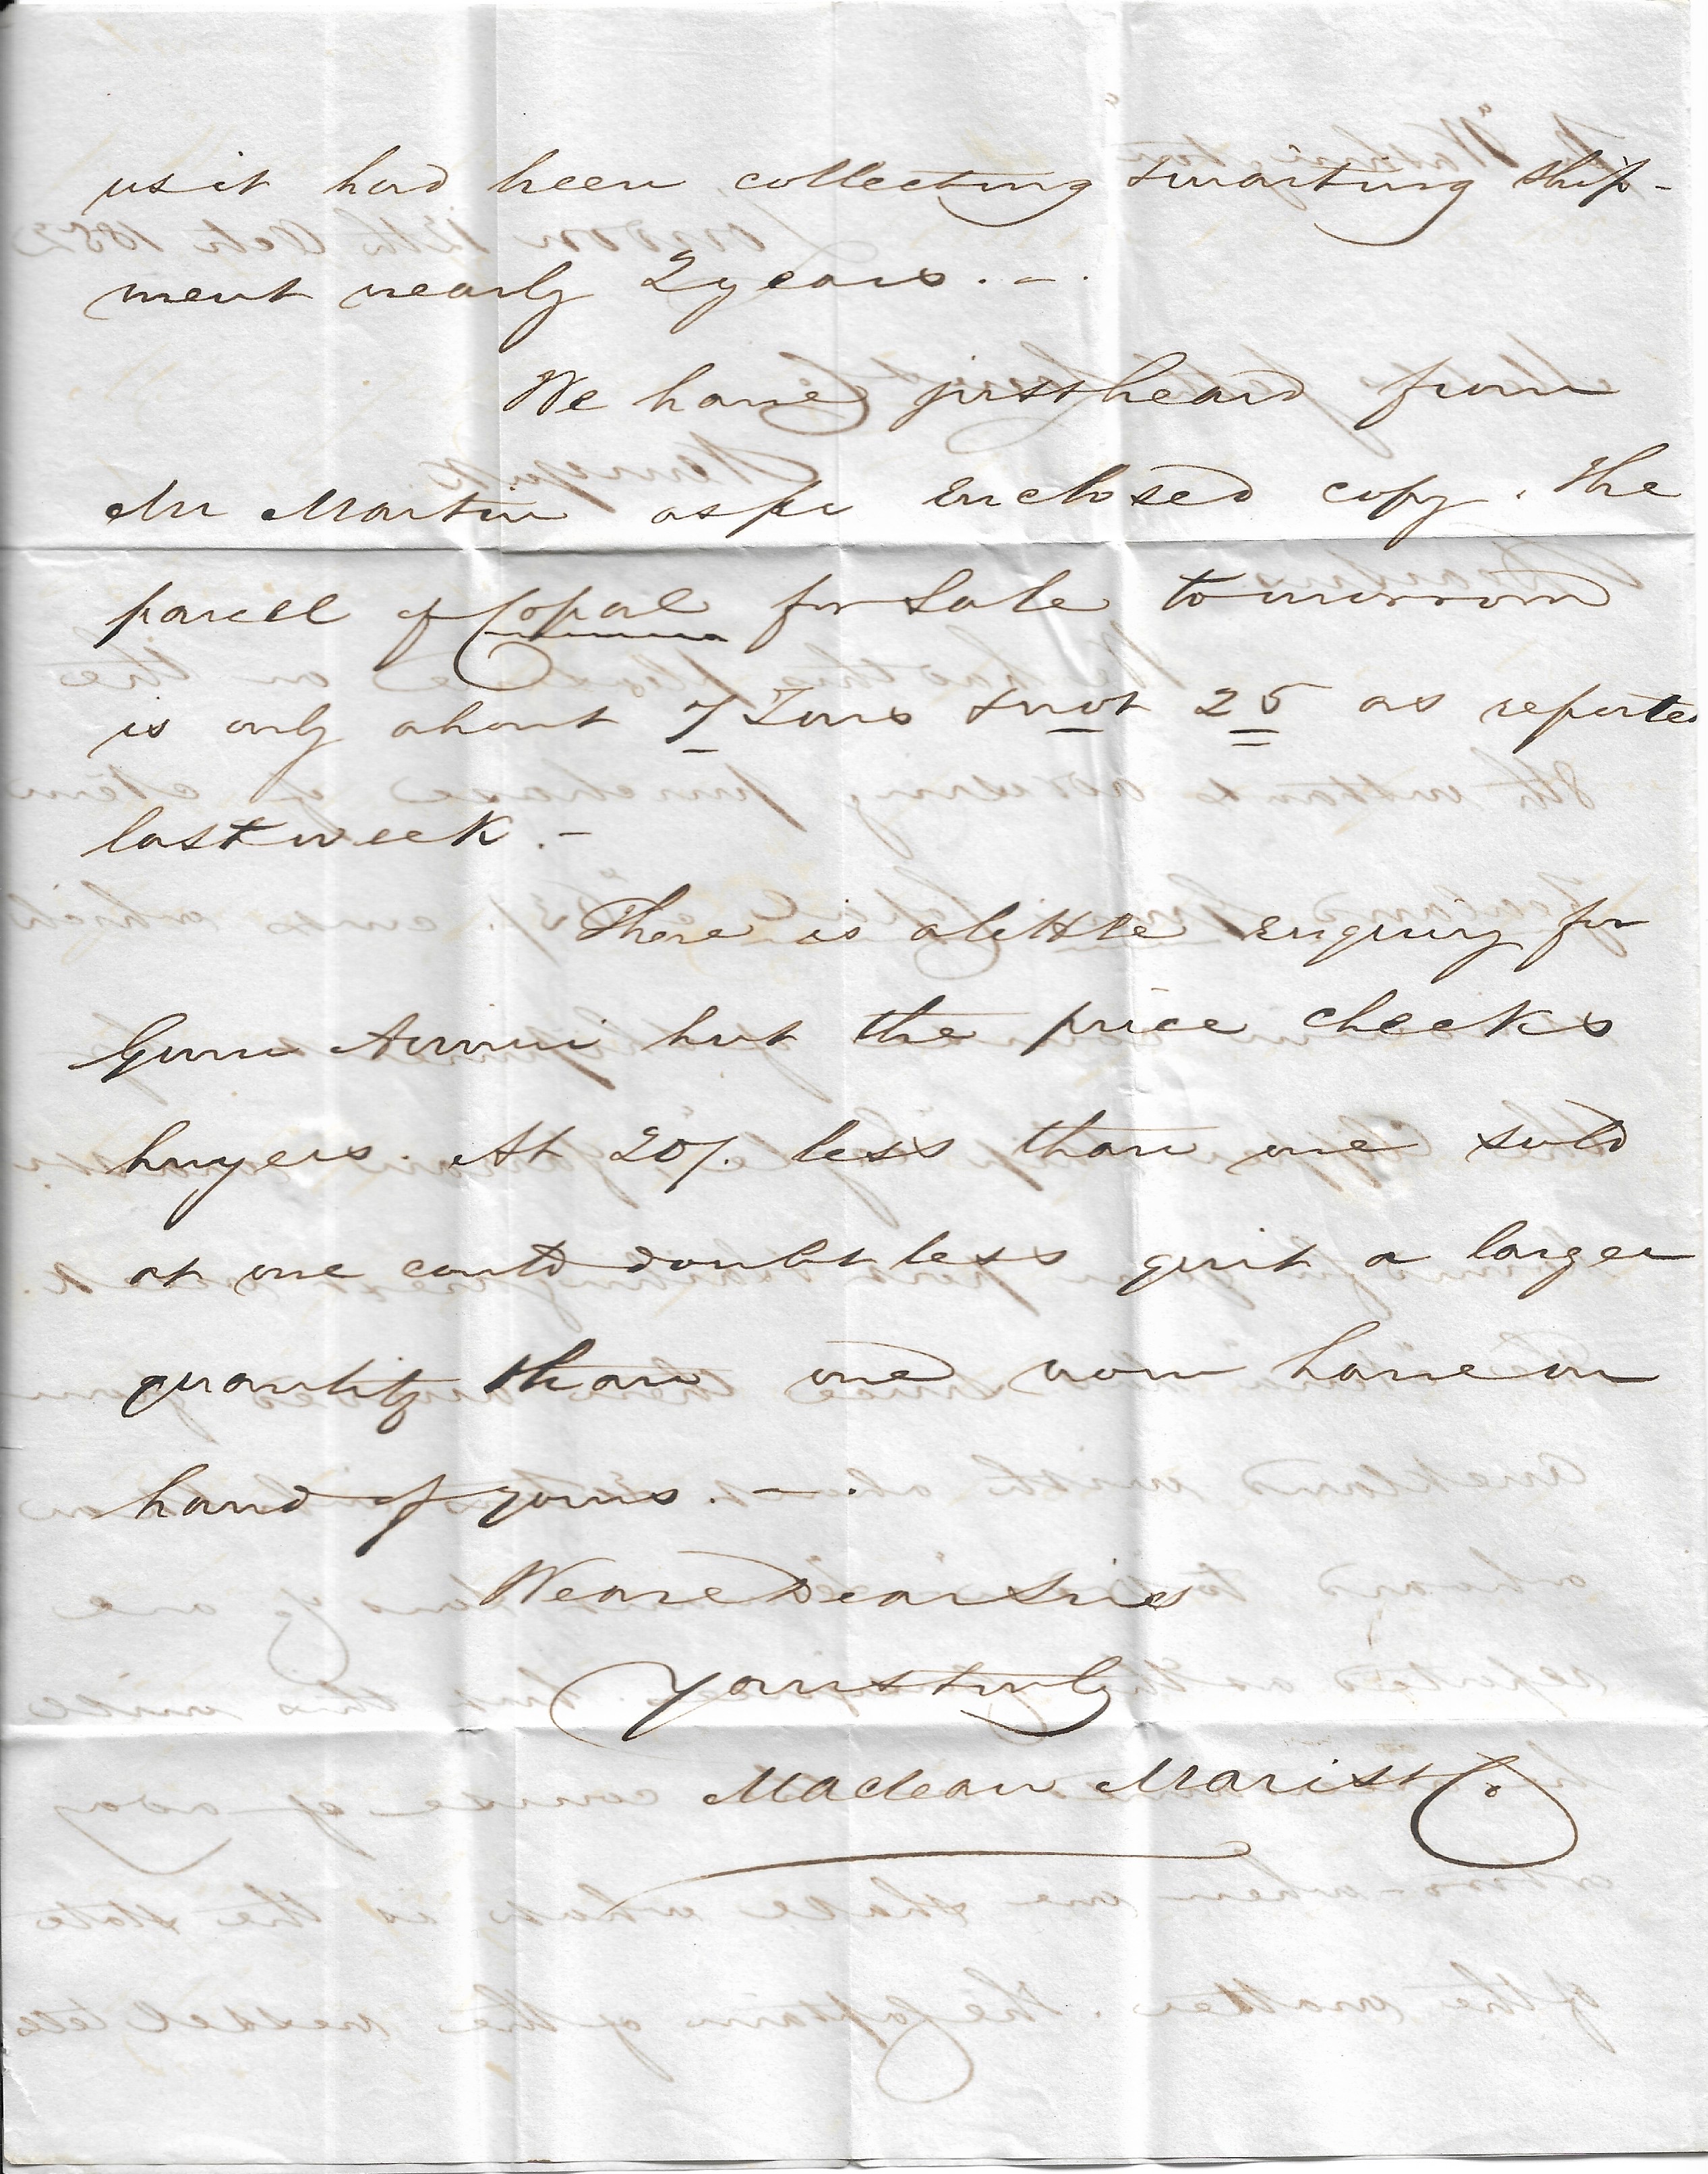 us it had been collecting & waiting ship-
ment nearly 2 years. -.
We have just heard from
Mr Martin as per enclosed copy. The
parcel of Copal for Sale tomorrow
is only about 7 Tons & not 25 as reported
last week. -
There is a little enquiry for
Gum Animi but the price checks
buyers. At 20/. less than we sold
at we could doubtless quit a larger
quantity than we now have on
hand of yours. -.
We are Dear Sirs
Yours truly
Maclean Maris & Co